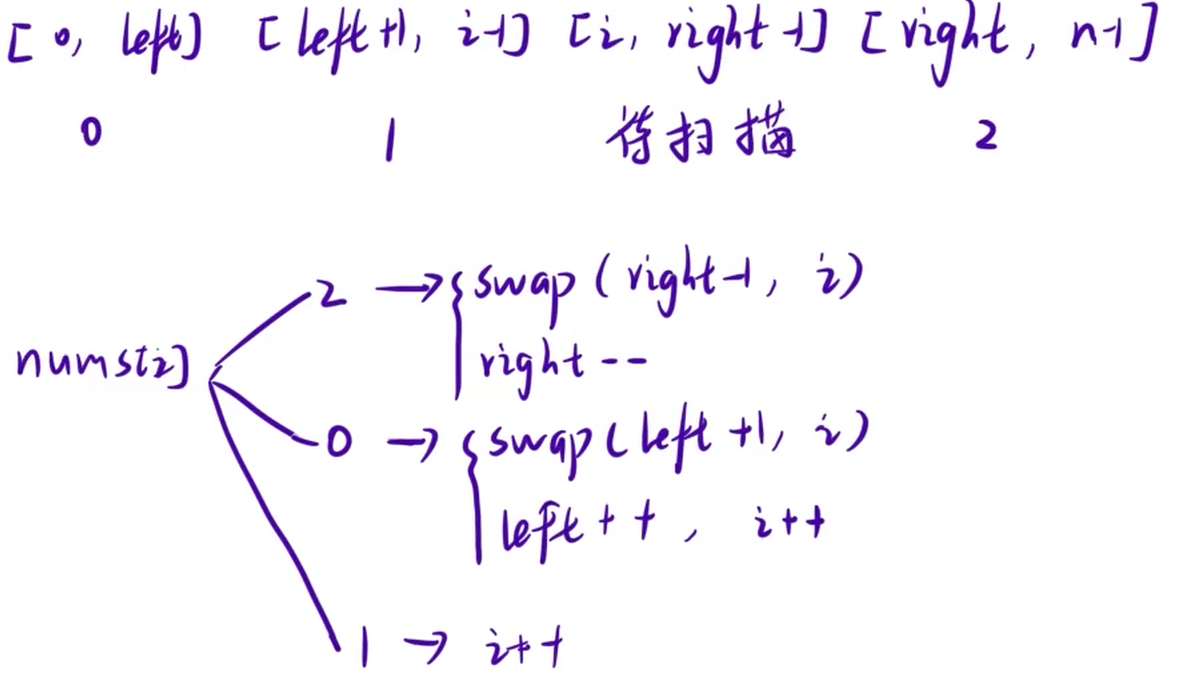 [0, left] [left+1, i-1] [i, right-1] [right, n-1]
0 1 待扫描 2
2 → { swap(right-1, i)
nums[i] right--
0 → { swap(left+1, i)
left++, i++
1 → i++